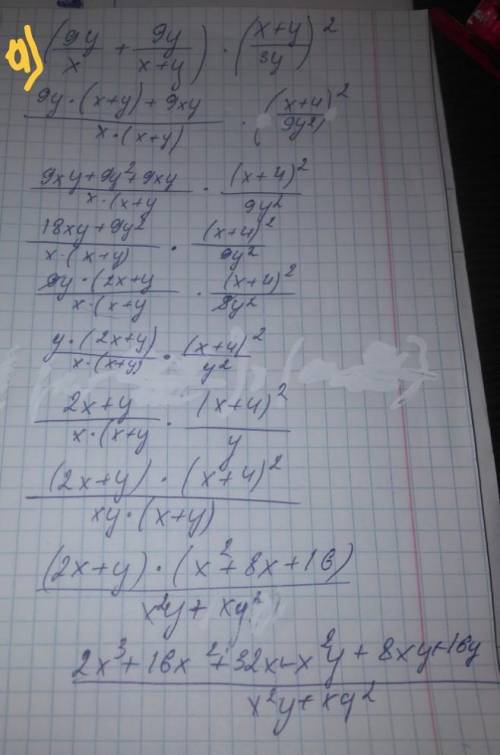 a) (9y/x + 9y/x+y) · (x+y/3y)²
9y·(x+y)+9xy / x·(x+y) · (x+4)²/9y²
9xy+9y²+9xy / x·(x+y · (x+4)²/9y²
18xy+9y² / x·(x+y) · (x+4)²/9y²
9y·(2x+y / x·(x+y · (x+4)²/9y²
y·(2x+y) / x·(x+y) · (x+4)²/y²
2x+y / x·(x+y · (x+4)²/y
(2x+y)·(x+4)² / xy·(x+y)
(2x+y)·(x²+8x+16) / x²y+xy²
2x³+16x²+32x+x²y+8xy+16y / x²y+xy²